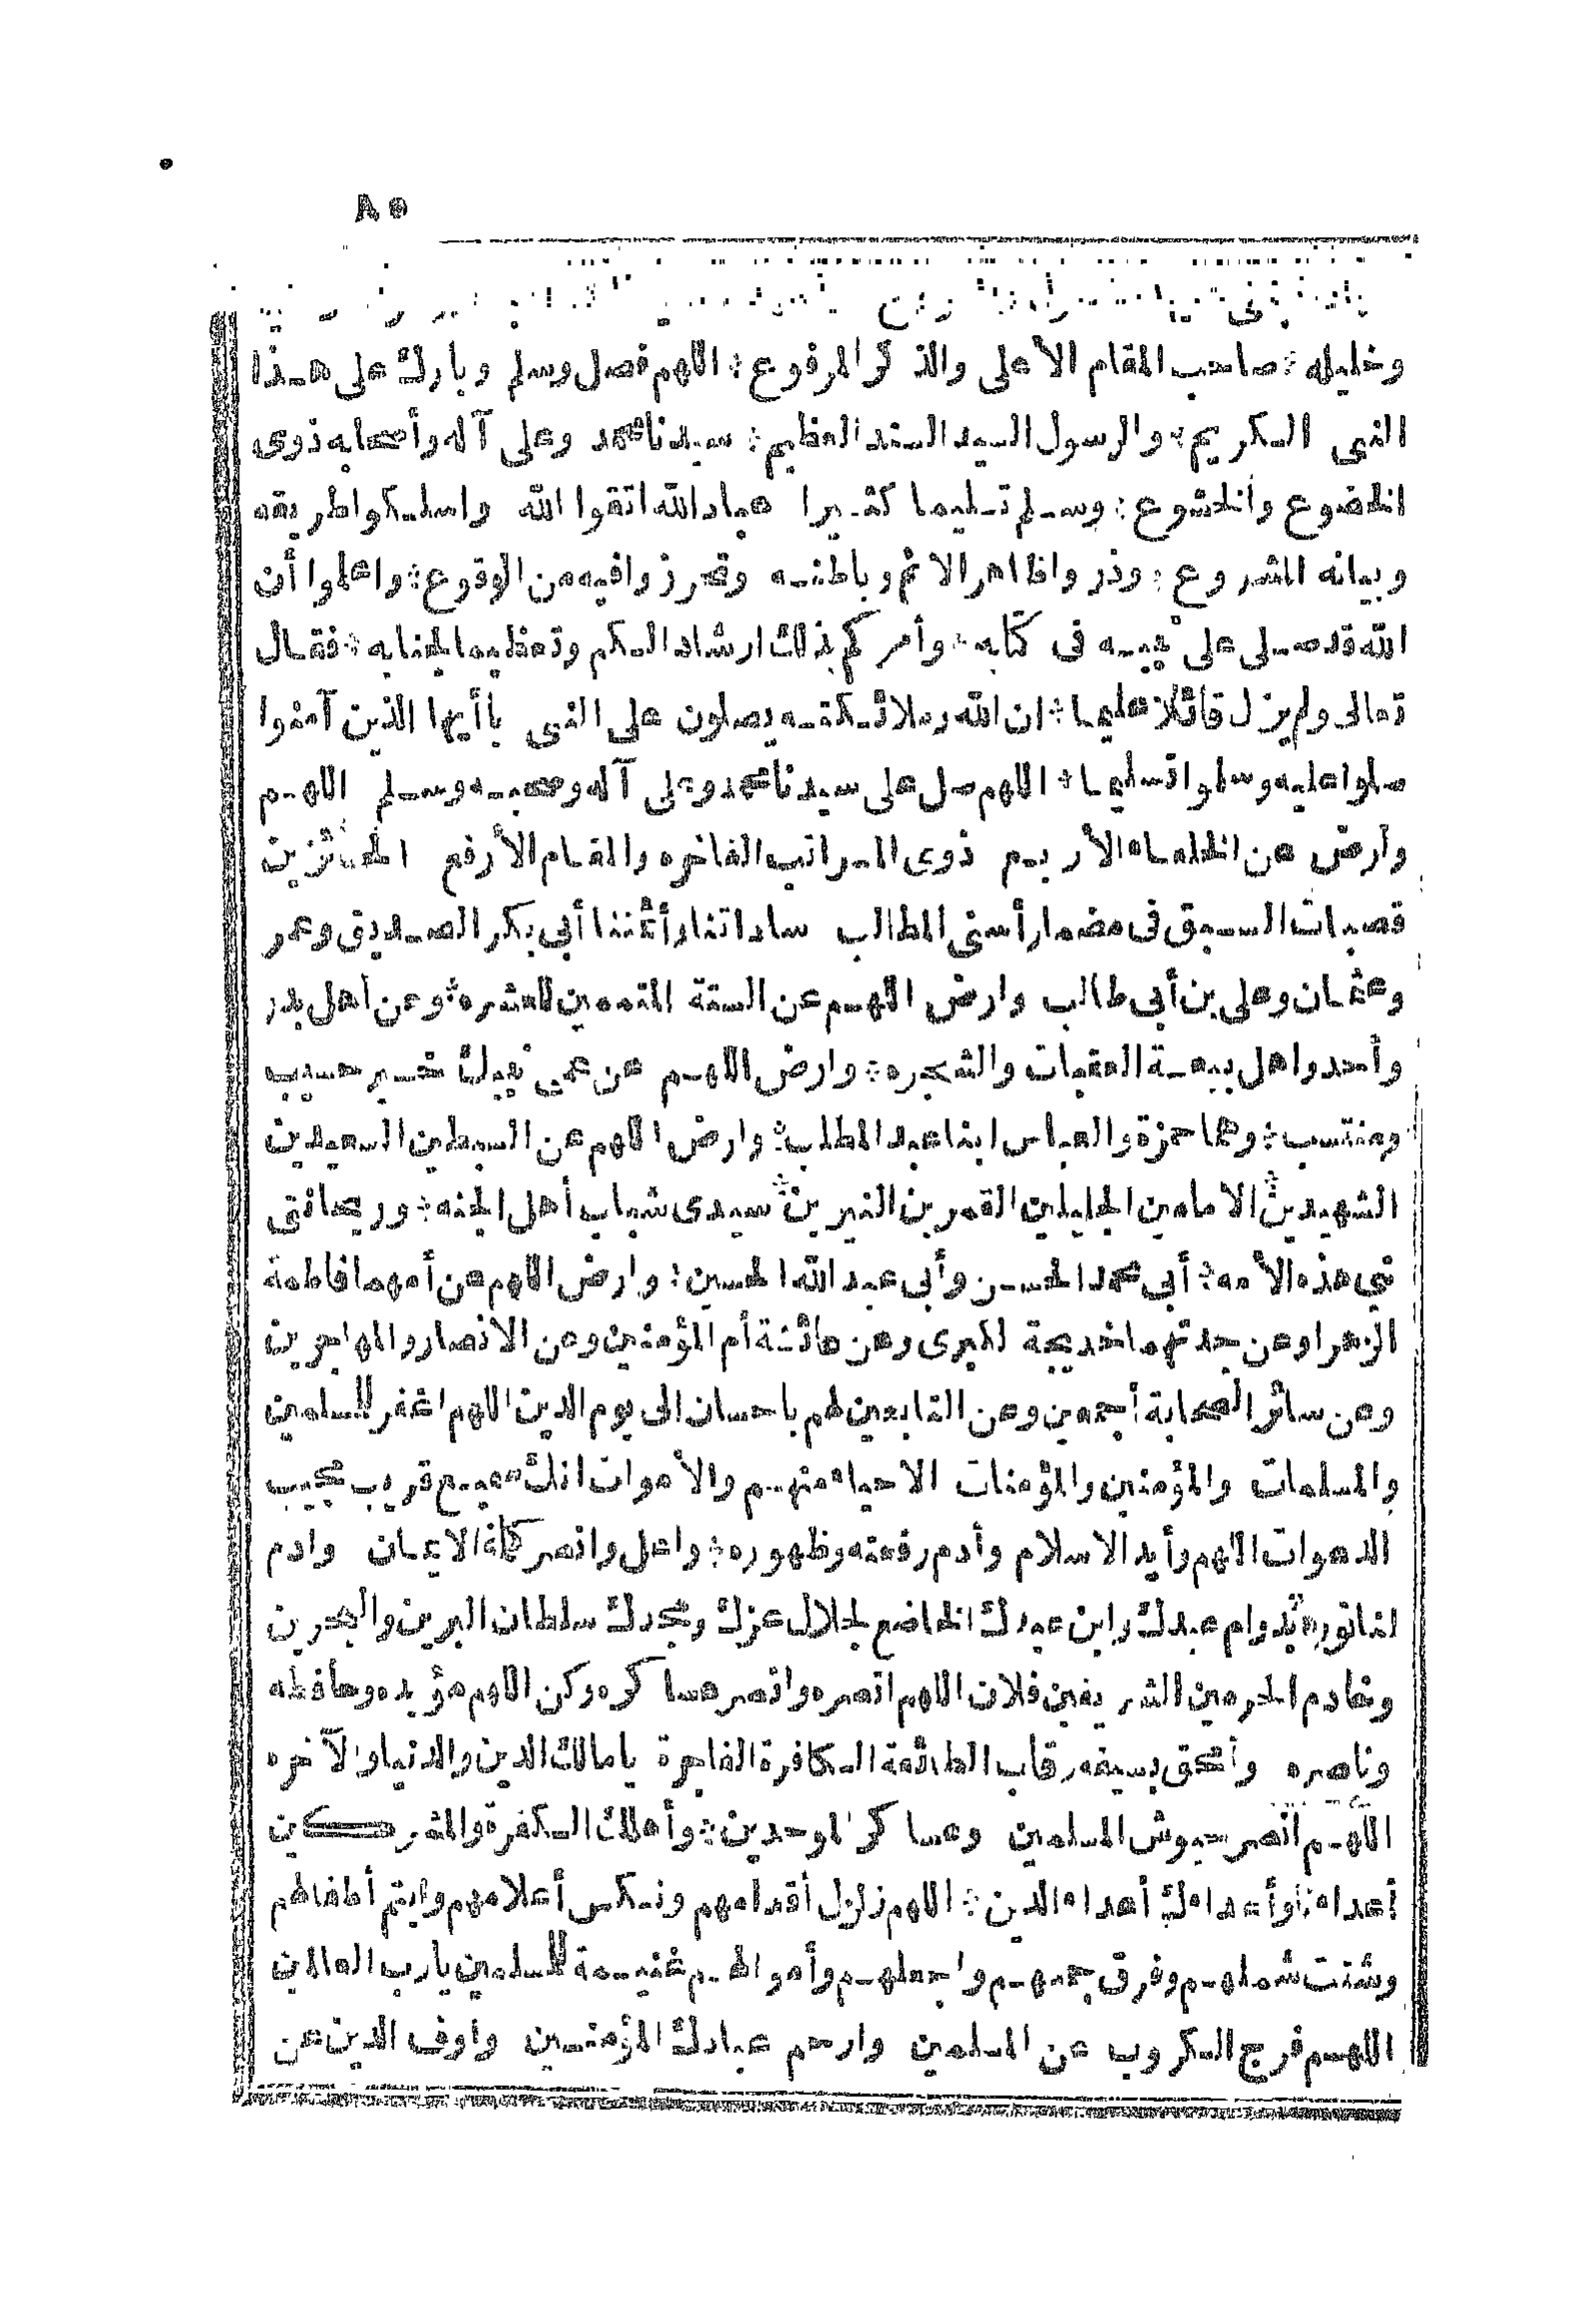 ٨٥
وخليله ؛ صاحب المقام الأعلى والذكر المرفوع ؛ اللهم فصل وسلم وبارك على هذا
النبى الكريم ؛ والرسول السيد السند العظيم ؛ سيدنا محمد وعلى آله وأصحابه ذوى
الخضوع والخشوع ؛ وسلم تسليما كثيرا عباد الله اتقوا الله واسلكوا طريقه
وبيانه المشروع ؛ وذروا ظاهر الاثم وباطنه وتحرزوا فيه من الوقوع ؛ واعلموا أن
الله قد صلى على نبيه فى كتابه ؛ وأمركم بذلك ارشادا لكم وتعظيما لجنابه ؛ فقال
تعالى ولم يزل قائلا عليما ؛ ان الله وملائكته يصلون على النبى يا أيها الذين آمنوا
صلوا عليه وسلموا تسليما ؛ اللهم صل على سيدنا محمد وعلى آله وصحبه وسلم اللهم
وارض عن الخلفاء الأربع ذوى المراتب الفاخره والمقام الأرفع الحائزين
قصبات السبق فى مضمار أسنى المطالب ساداتنا وأئمتنا أبى بكر الصديق وعمر
وعثمان وعلى بن أبى طالب وارض اللهم عن الستة المتممين للعشره ؛ وعن أهل بدر
وأحد وأهل بيعة العقبات والشجره ؛ وارض اللهم عن عمى نبيك خير حسيب
ومنتسب ؛ وهما حمزة والعباس ابنا عبد المطلب ؛ وارض اللهم عن السبطين السعيدين
الشهيدين الامامين الجليلين القمرين النيرين سيدى شباب أهل الجنه ؛ وريحانتى
نبى هذه الأمه ؛ أبى محمد الحسن وأبى عبد الله الحسين ؛ وارض اللهم عن أمهما فاطمة
الزهرا وعن جدتهما خديجة الكبرى وعن عائشة أم المؤمنين وعن الانصار والمهاجرين
وعن سائر الصحابة أجمعين وعن التابعين لهم باحسان الى يوم الدين اللهم اغفر للمسلمين
والمسلمات والمؤمنين والمؤمنات الاحياء منهم والأموات انك سميع قريب مجيب
الدعوات اللهم وأيد الاسلام وأدم رفعته وظهوره ؛ واعل وانصر كلمة الايمان وادم
لنا نوره بدوام عبدك وابن عبدك الخاضع لجلال عزك ومجدك سلطان البرين والبحرين
وخادم الحرمين الشريفين فلان اللهم انصره وانصر عساكره وكن اللهم مؤيده وحافظه
وناصره وأمحق بسيفه رقاب الطائفة الكافرة الفاجرة يا مالك الدين والدنيا والآخره
اللهم انصر جيوش المسلمين وعساكر الموحدين ؛ وأهلك الكفرة والمشركين
أعداءنا وأعداءك أعداء الدين ؛ اللهم زلزل أقدامهم ونكس أعلامهم وايتم أطفالهم
وشتت شملهم وفرق جمعهم واجعلهم وأموالهم غنيمة للمسلمين يا رب العالمين
اللهم فرج الكروب عن المسلمين وارحم عبادك المؤمنين وأوف الدين عن